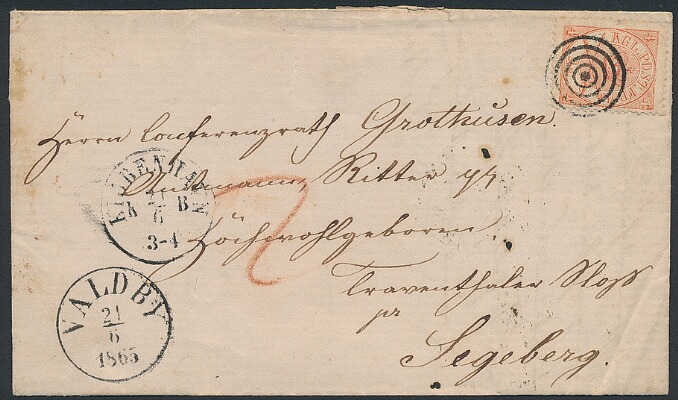 KGL. POST. FR
Herrn Conferenzrath Grothusen.
Amtmann, Ritter pp
Hochwohlgeboren
Traventhaler Sloß
pr
Segeberg.
2
KIØBENHAVN
K 21 B
6
3-4
VALDBY
21
6
1865